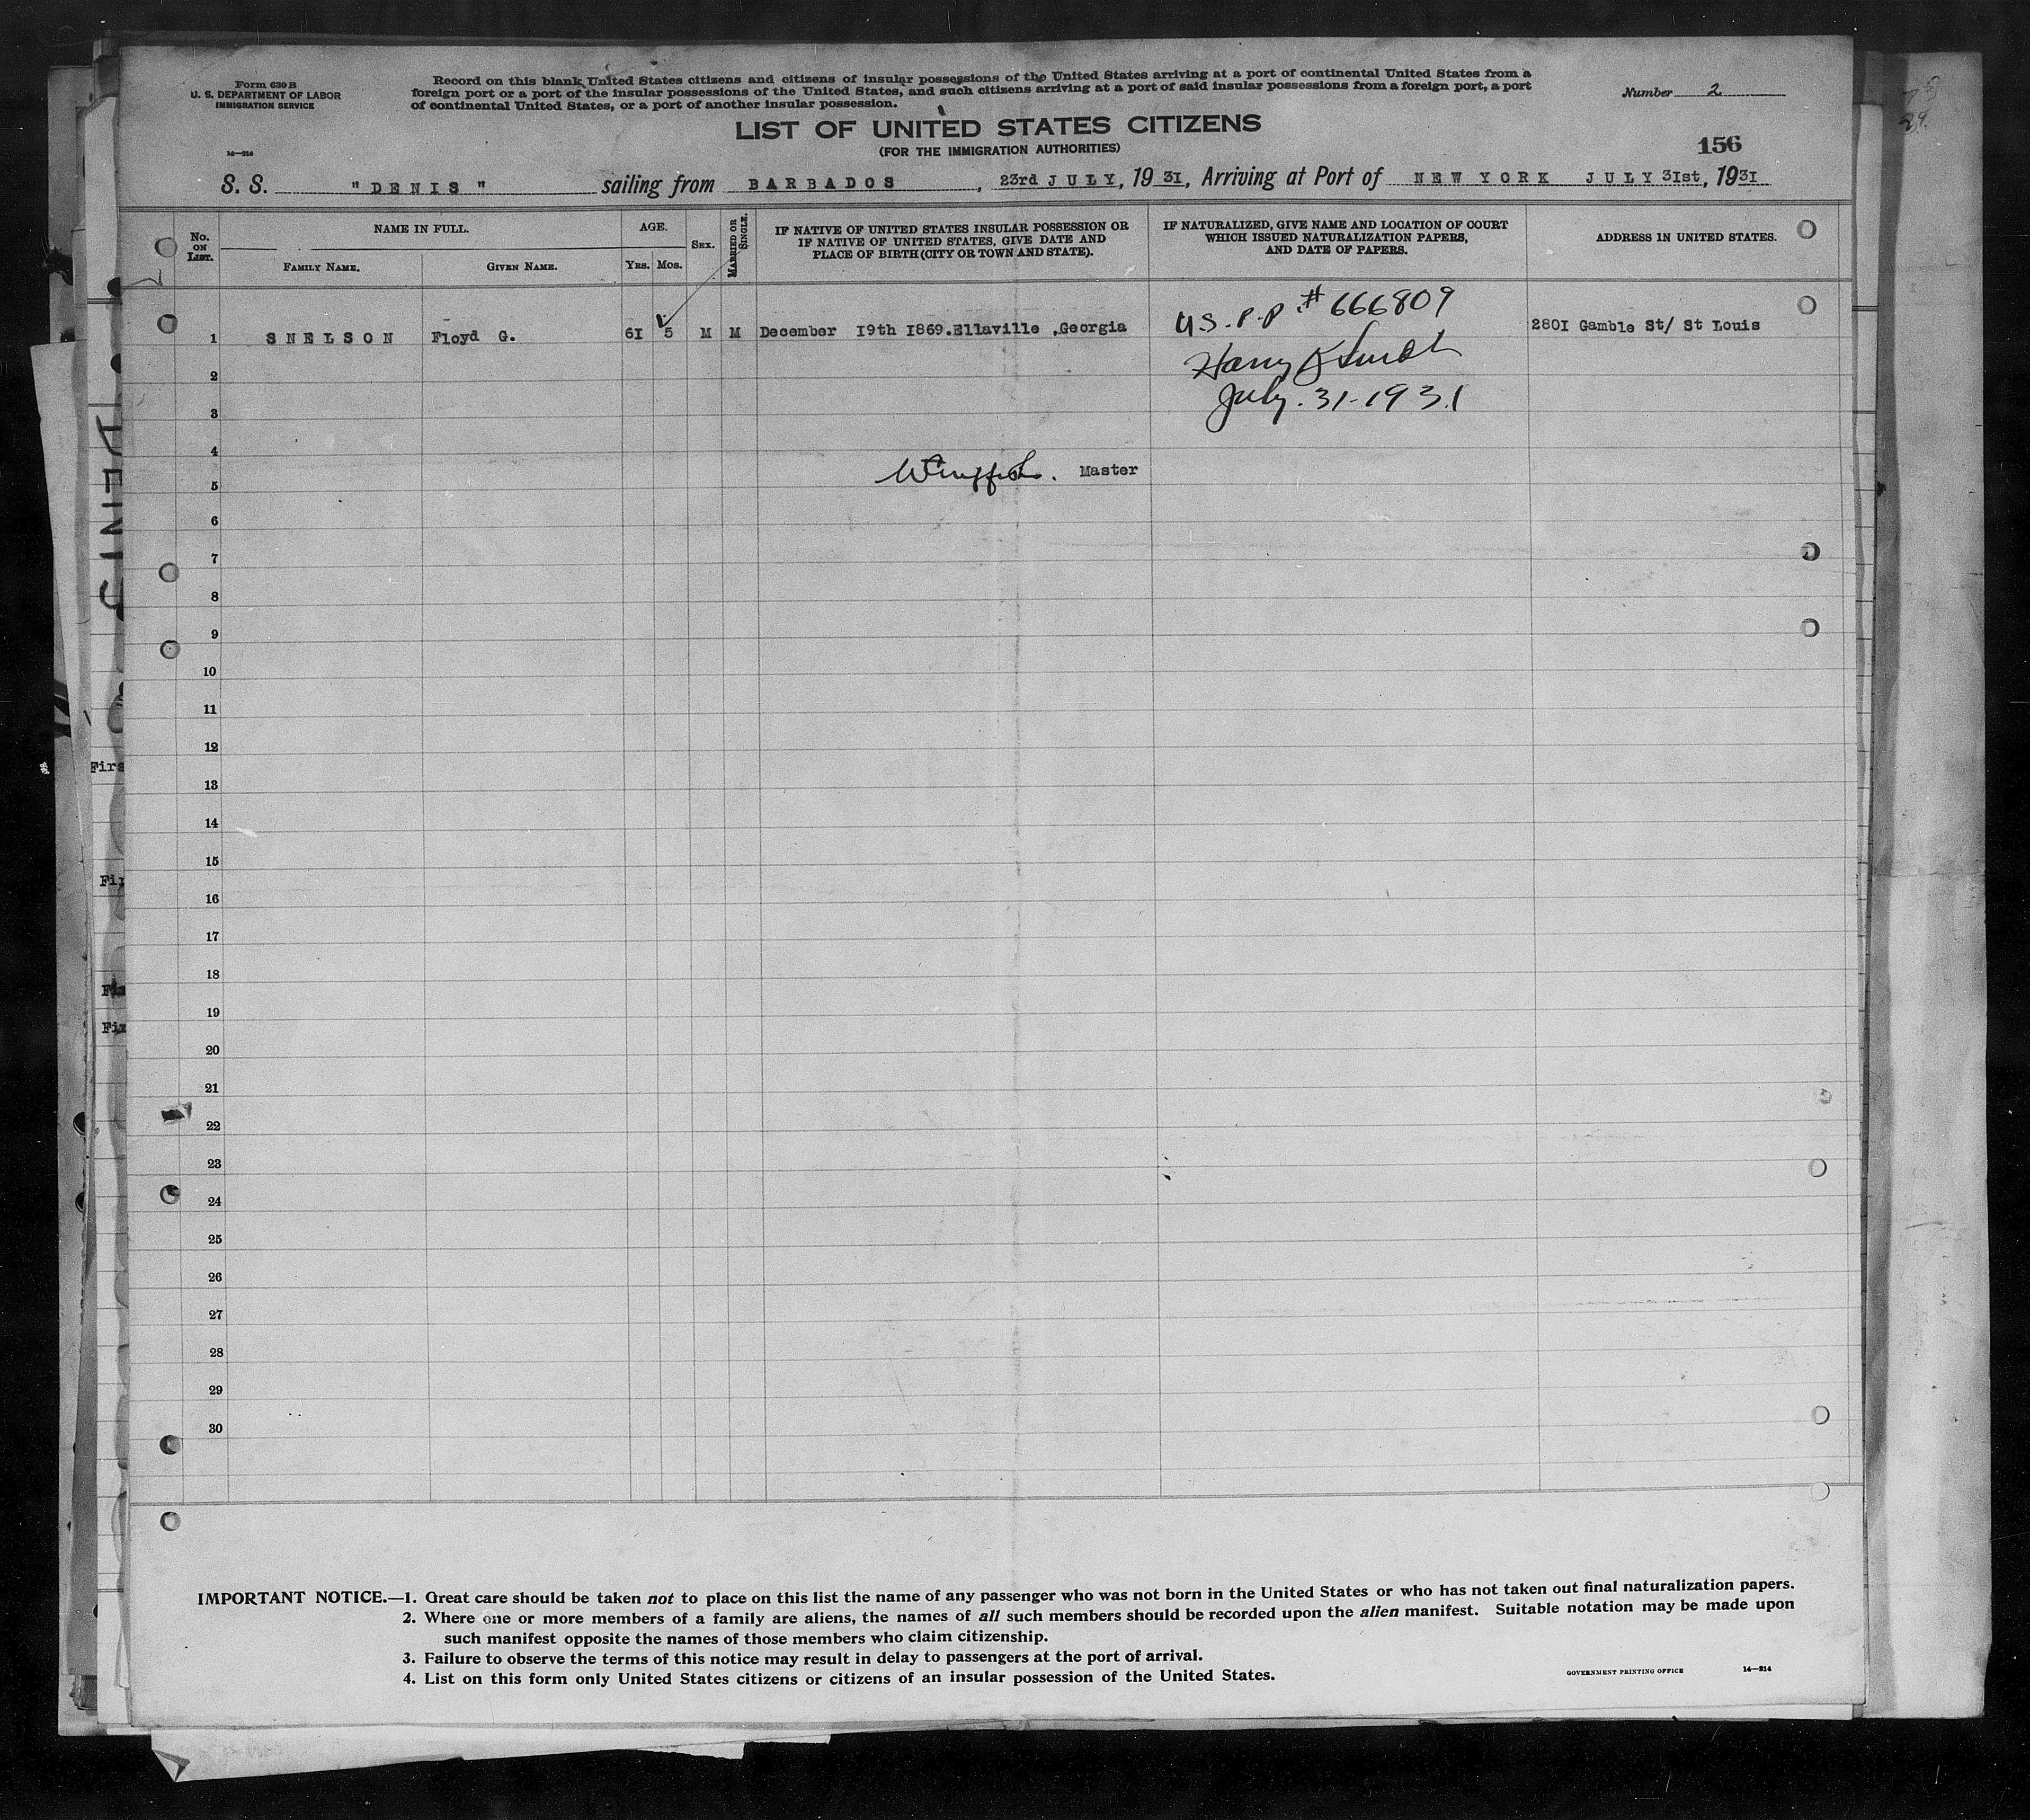 Form 630 B
U. S. DEPARTMENT OF LABOR
IMMIGRATION SERVICE
14—214
Record on this blank United States citizens and citizens of insular possessions of the United States arriving at a port of continental United States from a
foreign port or a port of the insular possessions of the United States, and such citizens arriving at a port of said insular possessions from a foreign port, a port
of continental United States, or a port of another insular possession.
Number 2
LIST OF UNITED STATES CITIZENS
(FOR THE IMMIGRATION AUTHORITIES)
156
S. S. "DENIS" sailing from BARBADOS, 23rd JULY, 19 31, Arriving at Port of NEW YORK JULY 31st, 1931
No. ON LIST.
NAME IN FULL.
FAMILY NAME.
GIVEN NAME.
AGE.
YRS. MOS.
SEX.
MARRIED OR SINGLE.
IF NATIVE OF UNITED STATES INSULAR POSSESSION OR
IF NATIVE OF UNITED STATES, GIVE DATE AND
PLACE OF BIRTH (CITY OR TOWN AND STATE).
IF NATURALIZED, GIVE NAME AND LOCATION OF COURT
WHICH ISSUED NATURALIZATION PAPERS,
AND DATE OF PAPERS.
ADDRESS IN UNITED STATES.
1 SNELSON Floyd G. 61 5 M M December 19th 1869.Ellaville ,Georgia U.S. P.P. # 666809 2801 Gamble St/ St Louis
2 Harry
3 July. 31-1931
4
5 Master
6
7
8
9
10
11
12
13
14
15
16
17
18
19
20
21
22
23
24
25
26
27
28
29
30
DENIS
IMPORTANT NOTICE.—1. Great care should be taken not to place on this list the name of any passenger who was not born in the United States or who has not taken out final naturalization papers.
2. Where one or more members of a family are aliens, the names of all such members should be recorded upon the alien manifest. Suitable notation may be made upon
such manifest opposite the names of those members who claim citizenship.
3. Failure to observe the terms of this notice may result in delay to passengers at the port of arrival.
4. List on this form only United States citizens or citizens of an insular possession of the United States.
GOVERNMENT PRINTING OFFICE 14—214